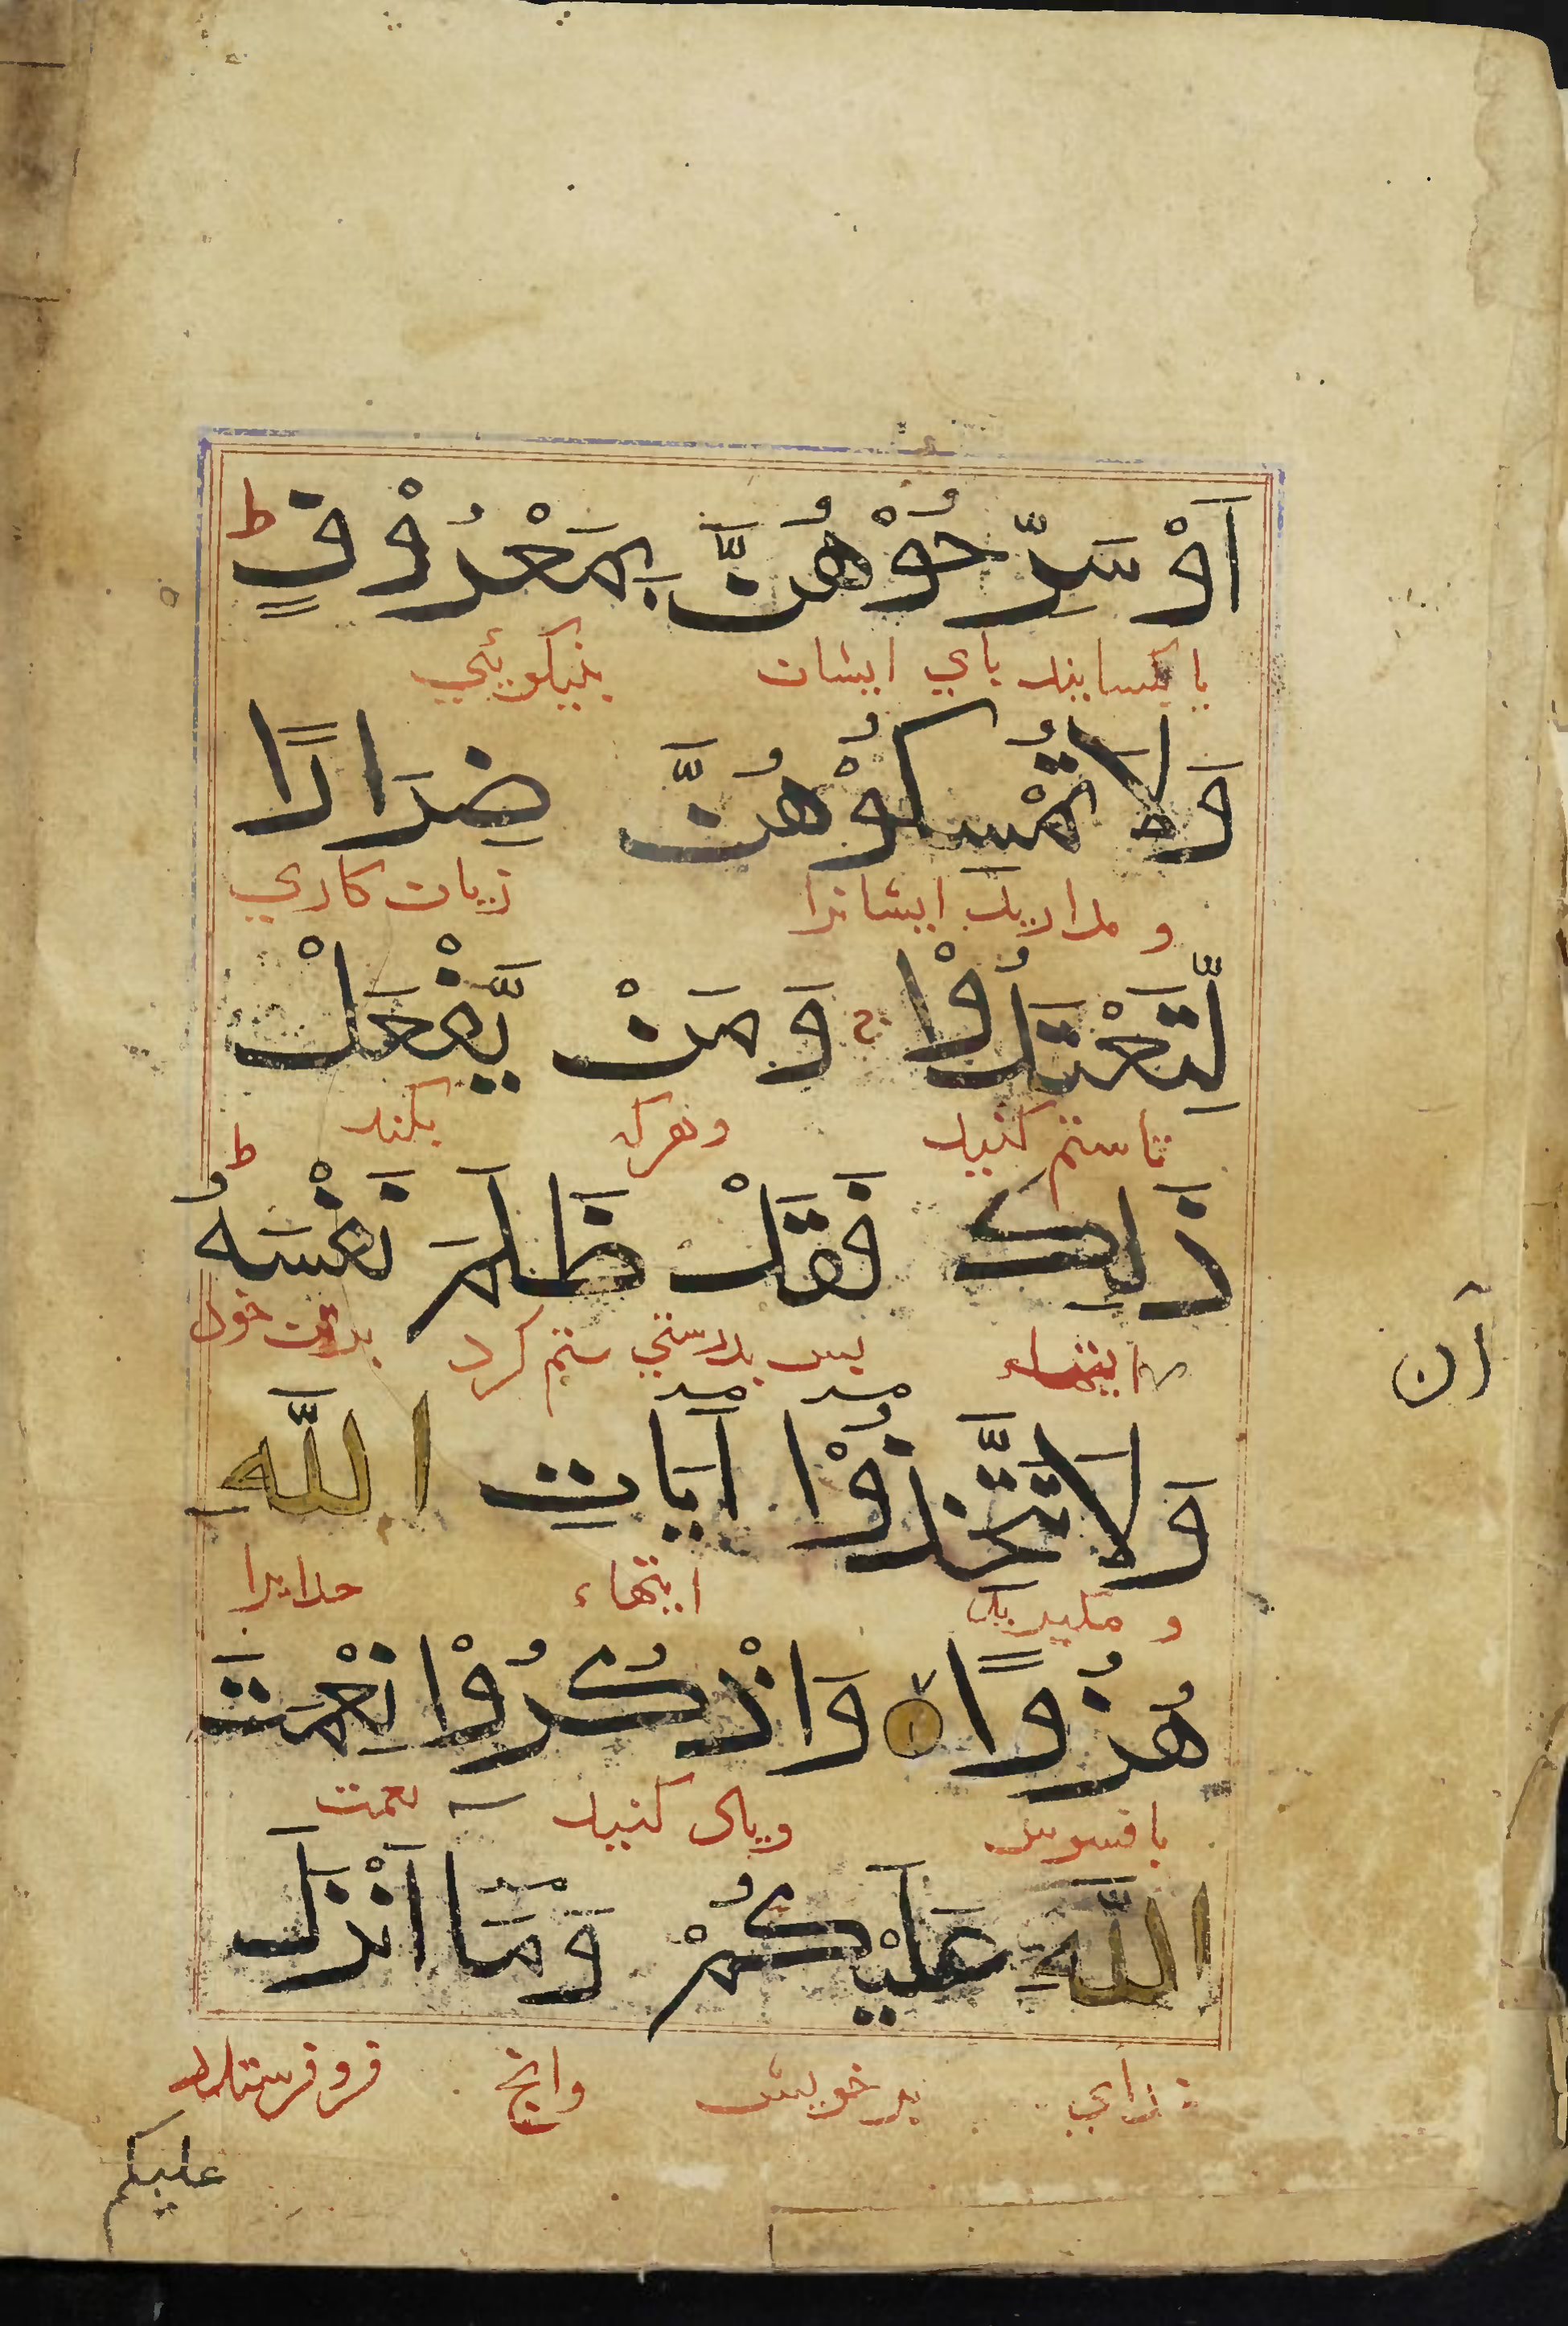 اَوْ سَرِّحُوْهُنَّ بِمَعْرُوْفٍ ط
يا بكسايند پاي ايشان بنيكويئي
وَلَا تُمْسِكُوْهُنَّ ضِرَارًا
و مداريد ايشانرا زيان كاري
لِّتَعْتَدُوْا ج وَمَنْ يَّفْعَلْ
تا ستم كنيد وهرك بكند
ذٰلِكَ فَقَدْ ظَلَمَ نَفْسَهُ ط
اينهاء پس بدرستي ستم كرد برتن خود
آن
وَلَا تَتَّخِذُوْا آيَاتِ اللَّهِ
و مگيريد آيتهاء خدايرا
هُزُوًا لا وَاذْكُرُوْا نِعْمَتَ
بافسوس وياد كنيد نعمت
اللَّهِ عَلَيْكُمْ وَمَا اَنْزَلَ
خداي بر خويش وانچ فرو فرستاد
عليكم